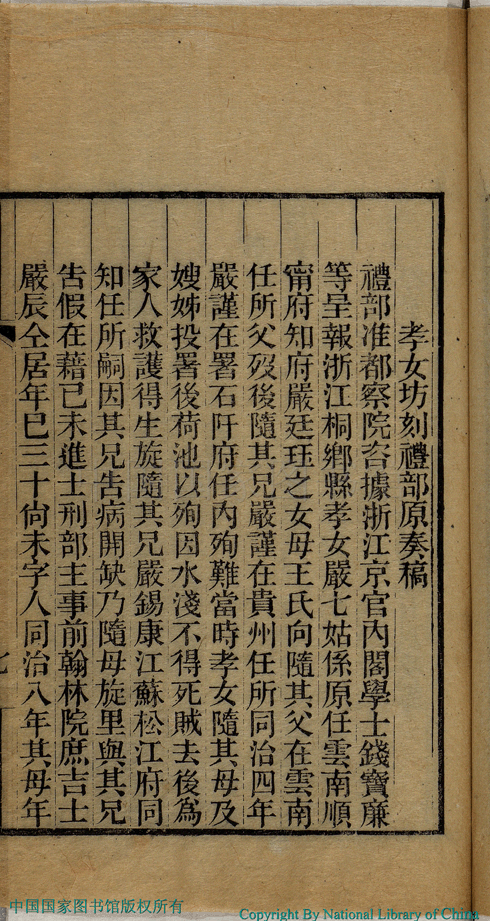 孝女坊刻禮部原奏稿
禮部准都察院咨據浙江京官內閣學士錢寶廉
等呈報浙江桐鄉縣孝女嚴七姑係原任雲南順
甯府知府嚴廷珏之女母王氏向隨其父在雲南
任所父歿後隨其兄嚴謹在貴州任所同治四年
嚴謹在署石阡府任內殉難當時孝女隨其母及
嫂姊投署後荷池以殉因水淺不得死賊去後爲
家人救護得生旋隨其兄嚴錫康江蘇松江府同
知任所嗣因其兄告病開缺乃隨母旋里與其兄
告假在藉己未進士刑部主事前翰林院庶吉士
嚴辰仝居年巳三十尙未字人同治八年其母年
七
中国国家图书馆版权所有
Copyright By National Library of China